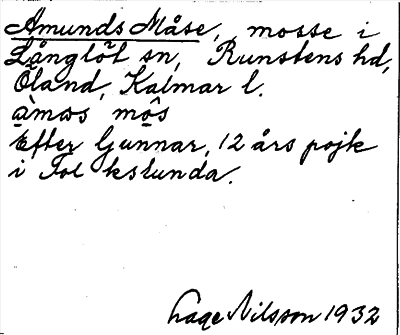 Amunds Måse, mosse i
Långlöt sn, Runstens hd,
Öland, Kalmar l.
àmɷs mo̱s
Efter Gunnar, 12 års pojk
i Fol kslunda.
Lage Nilsson 1932